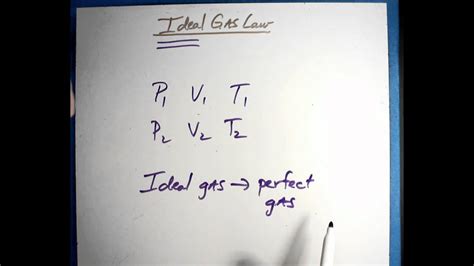 Ideal GAS Law
P₁ V₁ T₁
P₂ V₂ T₂
Ideal gAS → perfect
gAS